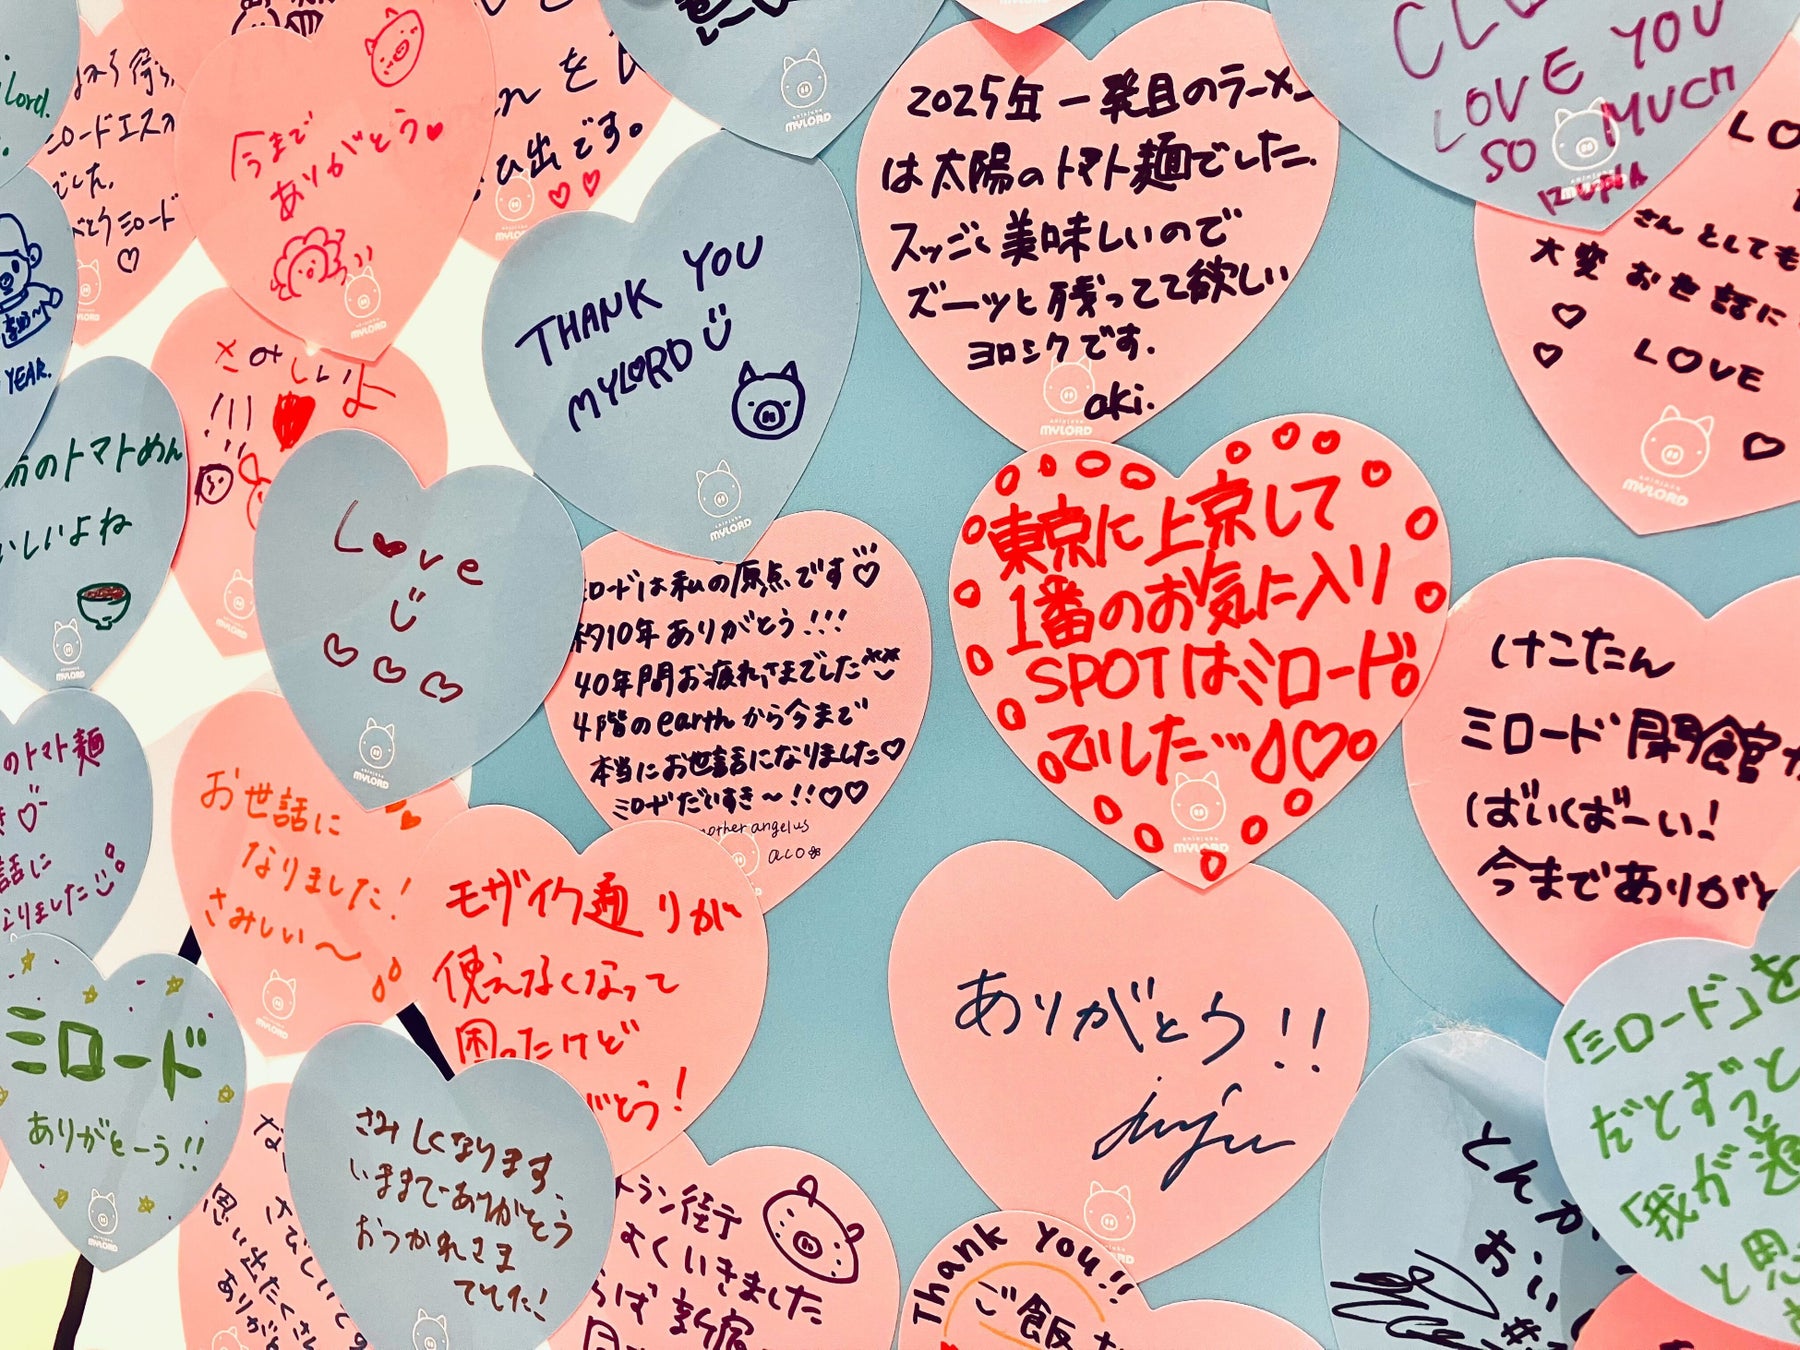 Lord.
みろ待ち
ロードエスカ
でした。
とうミロード
今まで
ありがとう
を
い出です。
MYLORD
2025年一発目のラーメン
は太陽のトマト麺でした。
スッごく美味しいので
ズーッと残ってて欲しい
ヨロシクです。
aki.
MYLORD
LOVE YOU
SO MUCH
さんとしても
大変お世話に
LOVE
MYLORD
YEAR.
さみしいよ
THANK YOU
MYLORD
MYLORD
のトマトめん
いしいよね
MYLORD
Love
MYLORD
ミロードは私の原点です
約10年ありがとう!!!
40年間お疲れさまでした
4階のearthから今まで
本当にお世話になりました
ミロードだいすき〜!!
mother angelus
aco
東京に上京して
1番のお気に入り
SPOTはミロード。
でした…
MYLORD
けこたん
ミロード閉館
ばいくばーい!
今までありがと
のトマト麺
話に
なりました
お世話に
なりました!
さみしい〜
MYLORD
モザイク通りが
使えなくなって
困ったけど
がとう!
ありがとう!!
ミロード
ありがとーう!!
MYLORD
さみしくなります。
いままでありがとう
おつかれさま
でした!
思い出たくさん
トラン街
よくいきました
新宿
Thank you!!
ご飯
とんか
おい
「ミロード」を
だとずっと
「我が道
と思